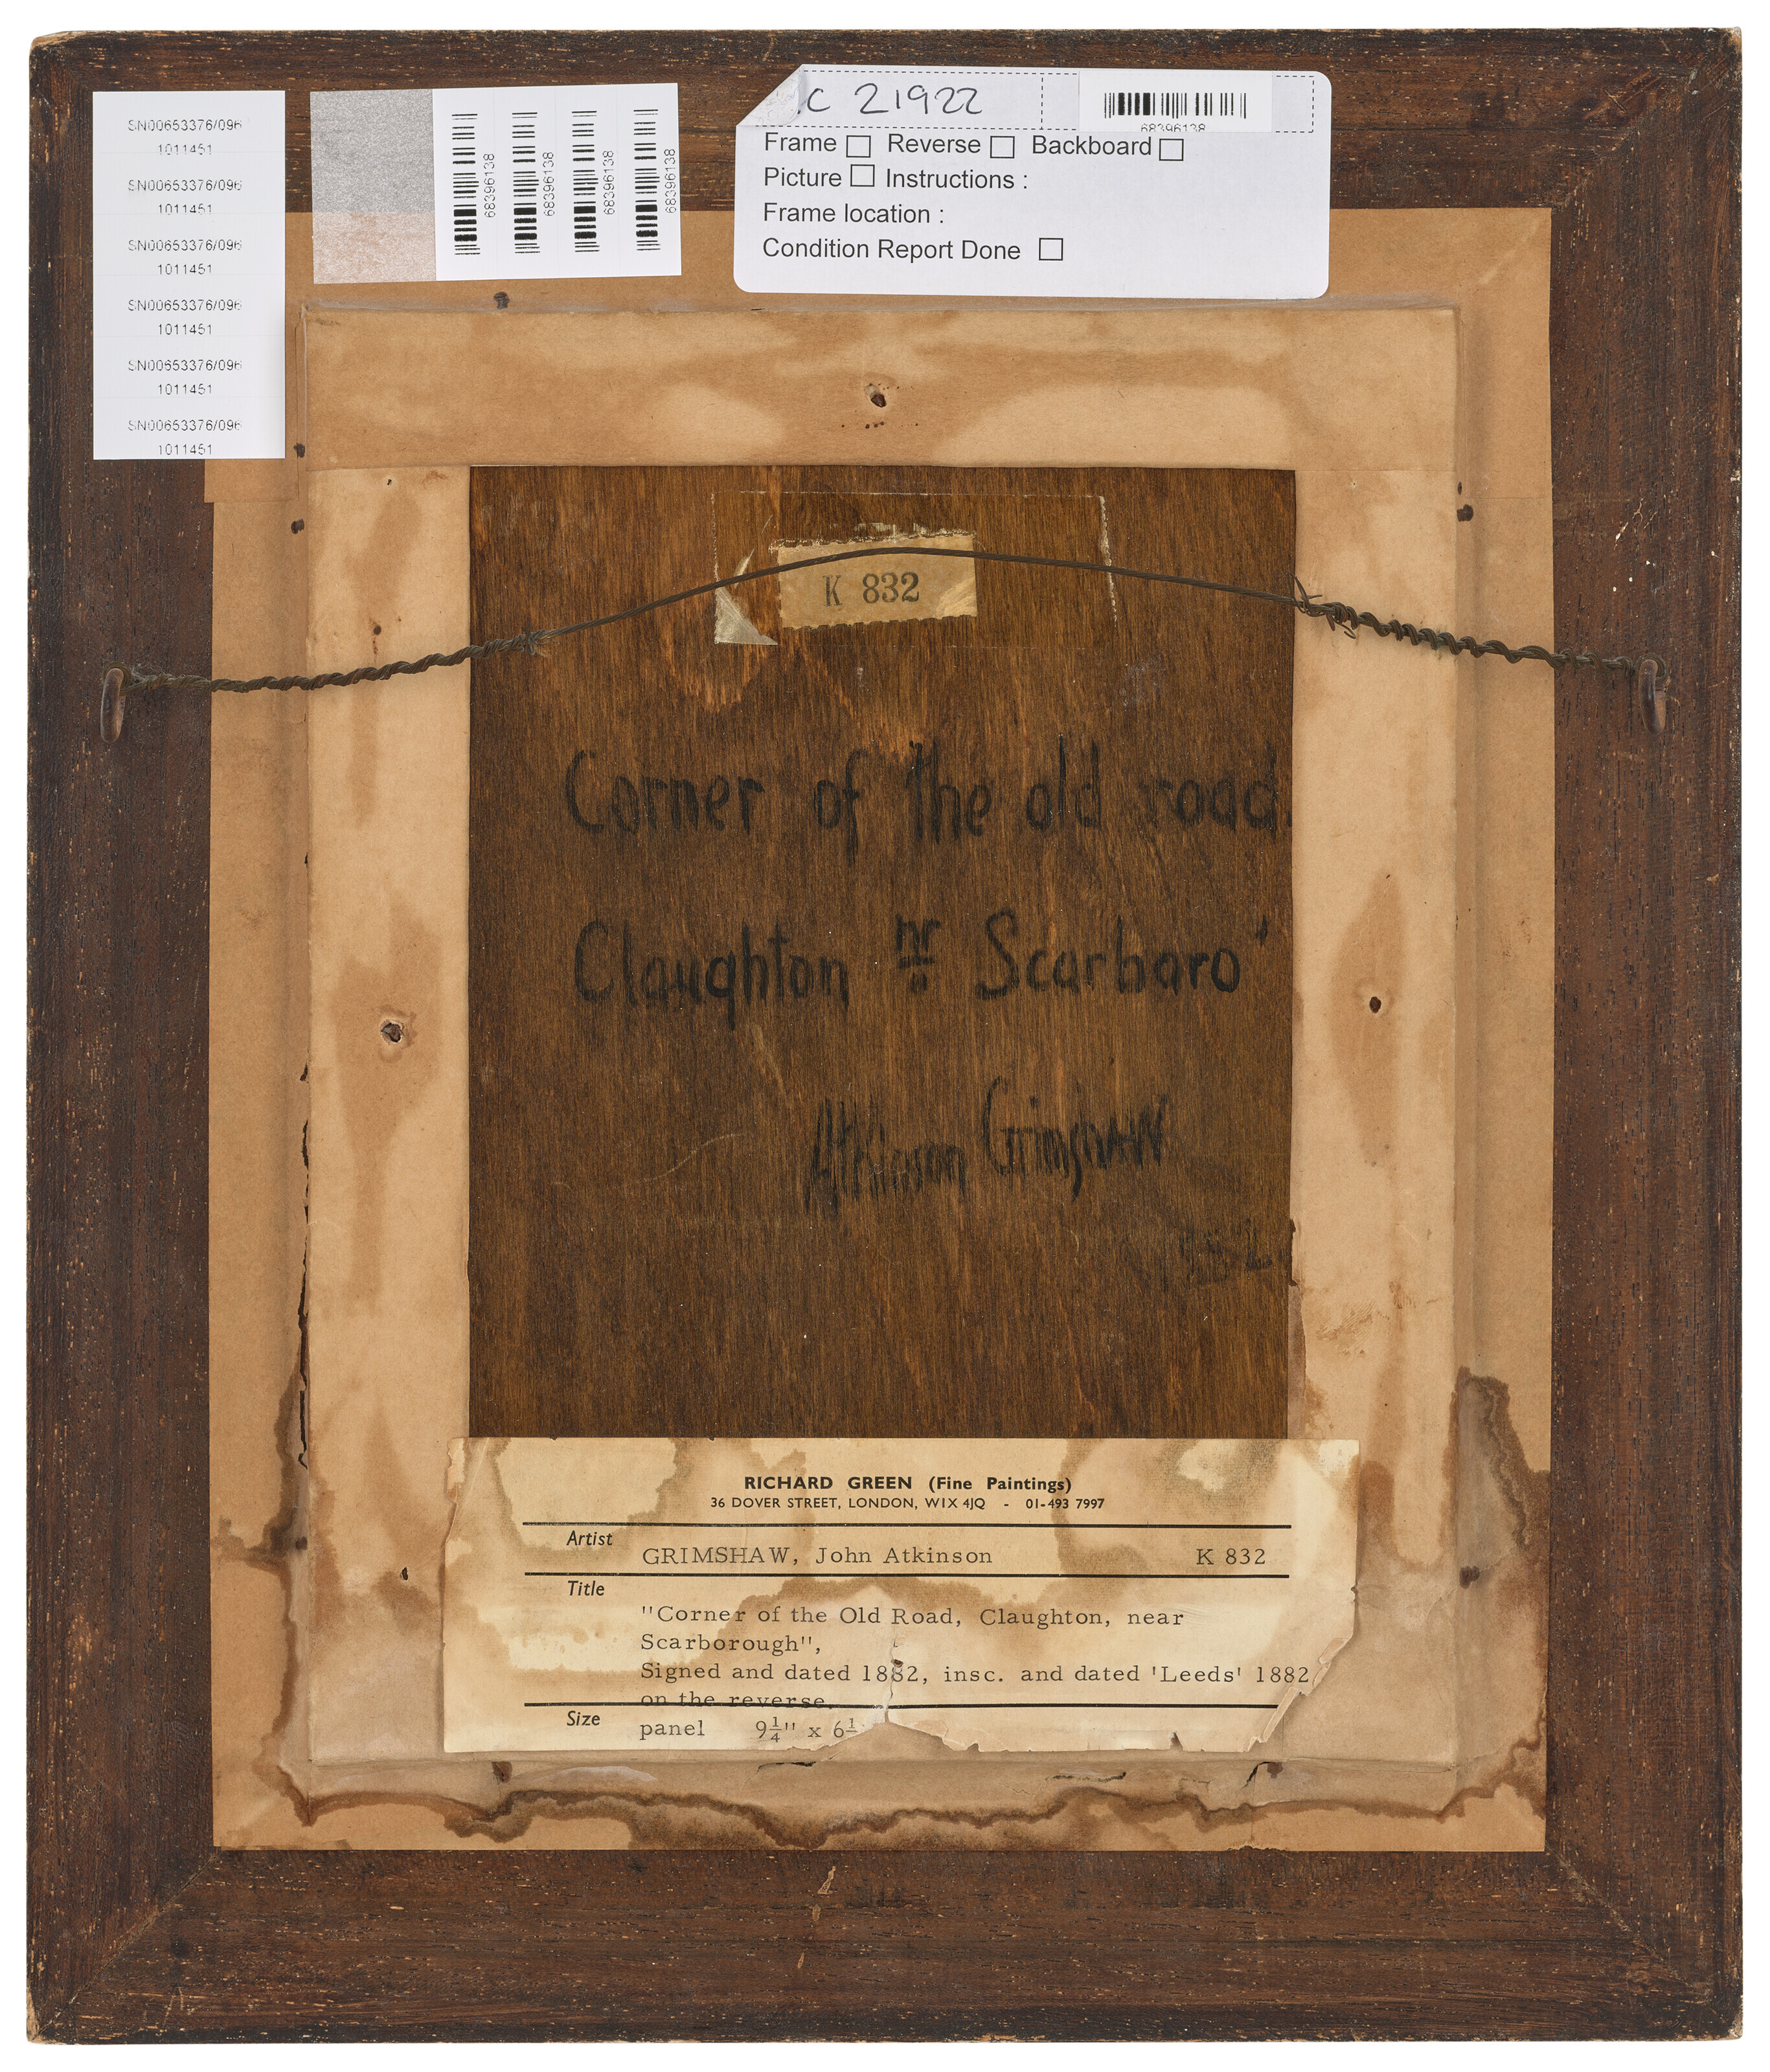 SN00653376/096
1011451
SN00653376/096
1011451
SN00653376/096
1011451
SN00653376/096
1011451
SN00653376/096
1011451
SN00653376/096
1011451
68396138
68396138
68396138
68396138
C 21922
68396138
Frame Reverse Backboard
Picture Instructions :
Frame location :
Condition Report Done
K 832
Corner of the old road.
Claughton nr Scarboro'
Atkinson Grimshaw
RICHARD GREEN (Fine Paintings)
36 DOVER STREET, LONDON, W1X 4JQ - 01-493 7997
Artist
GRIMSHAW, John Atkinson K 832
Title
"Corner of the Old Road, Claughton, near
Scarborough",
Signed and dated 1882, insc. and dated 'Leeds' 1882
on the reverse.
Size
panel 9¼" x 6